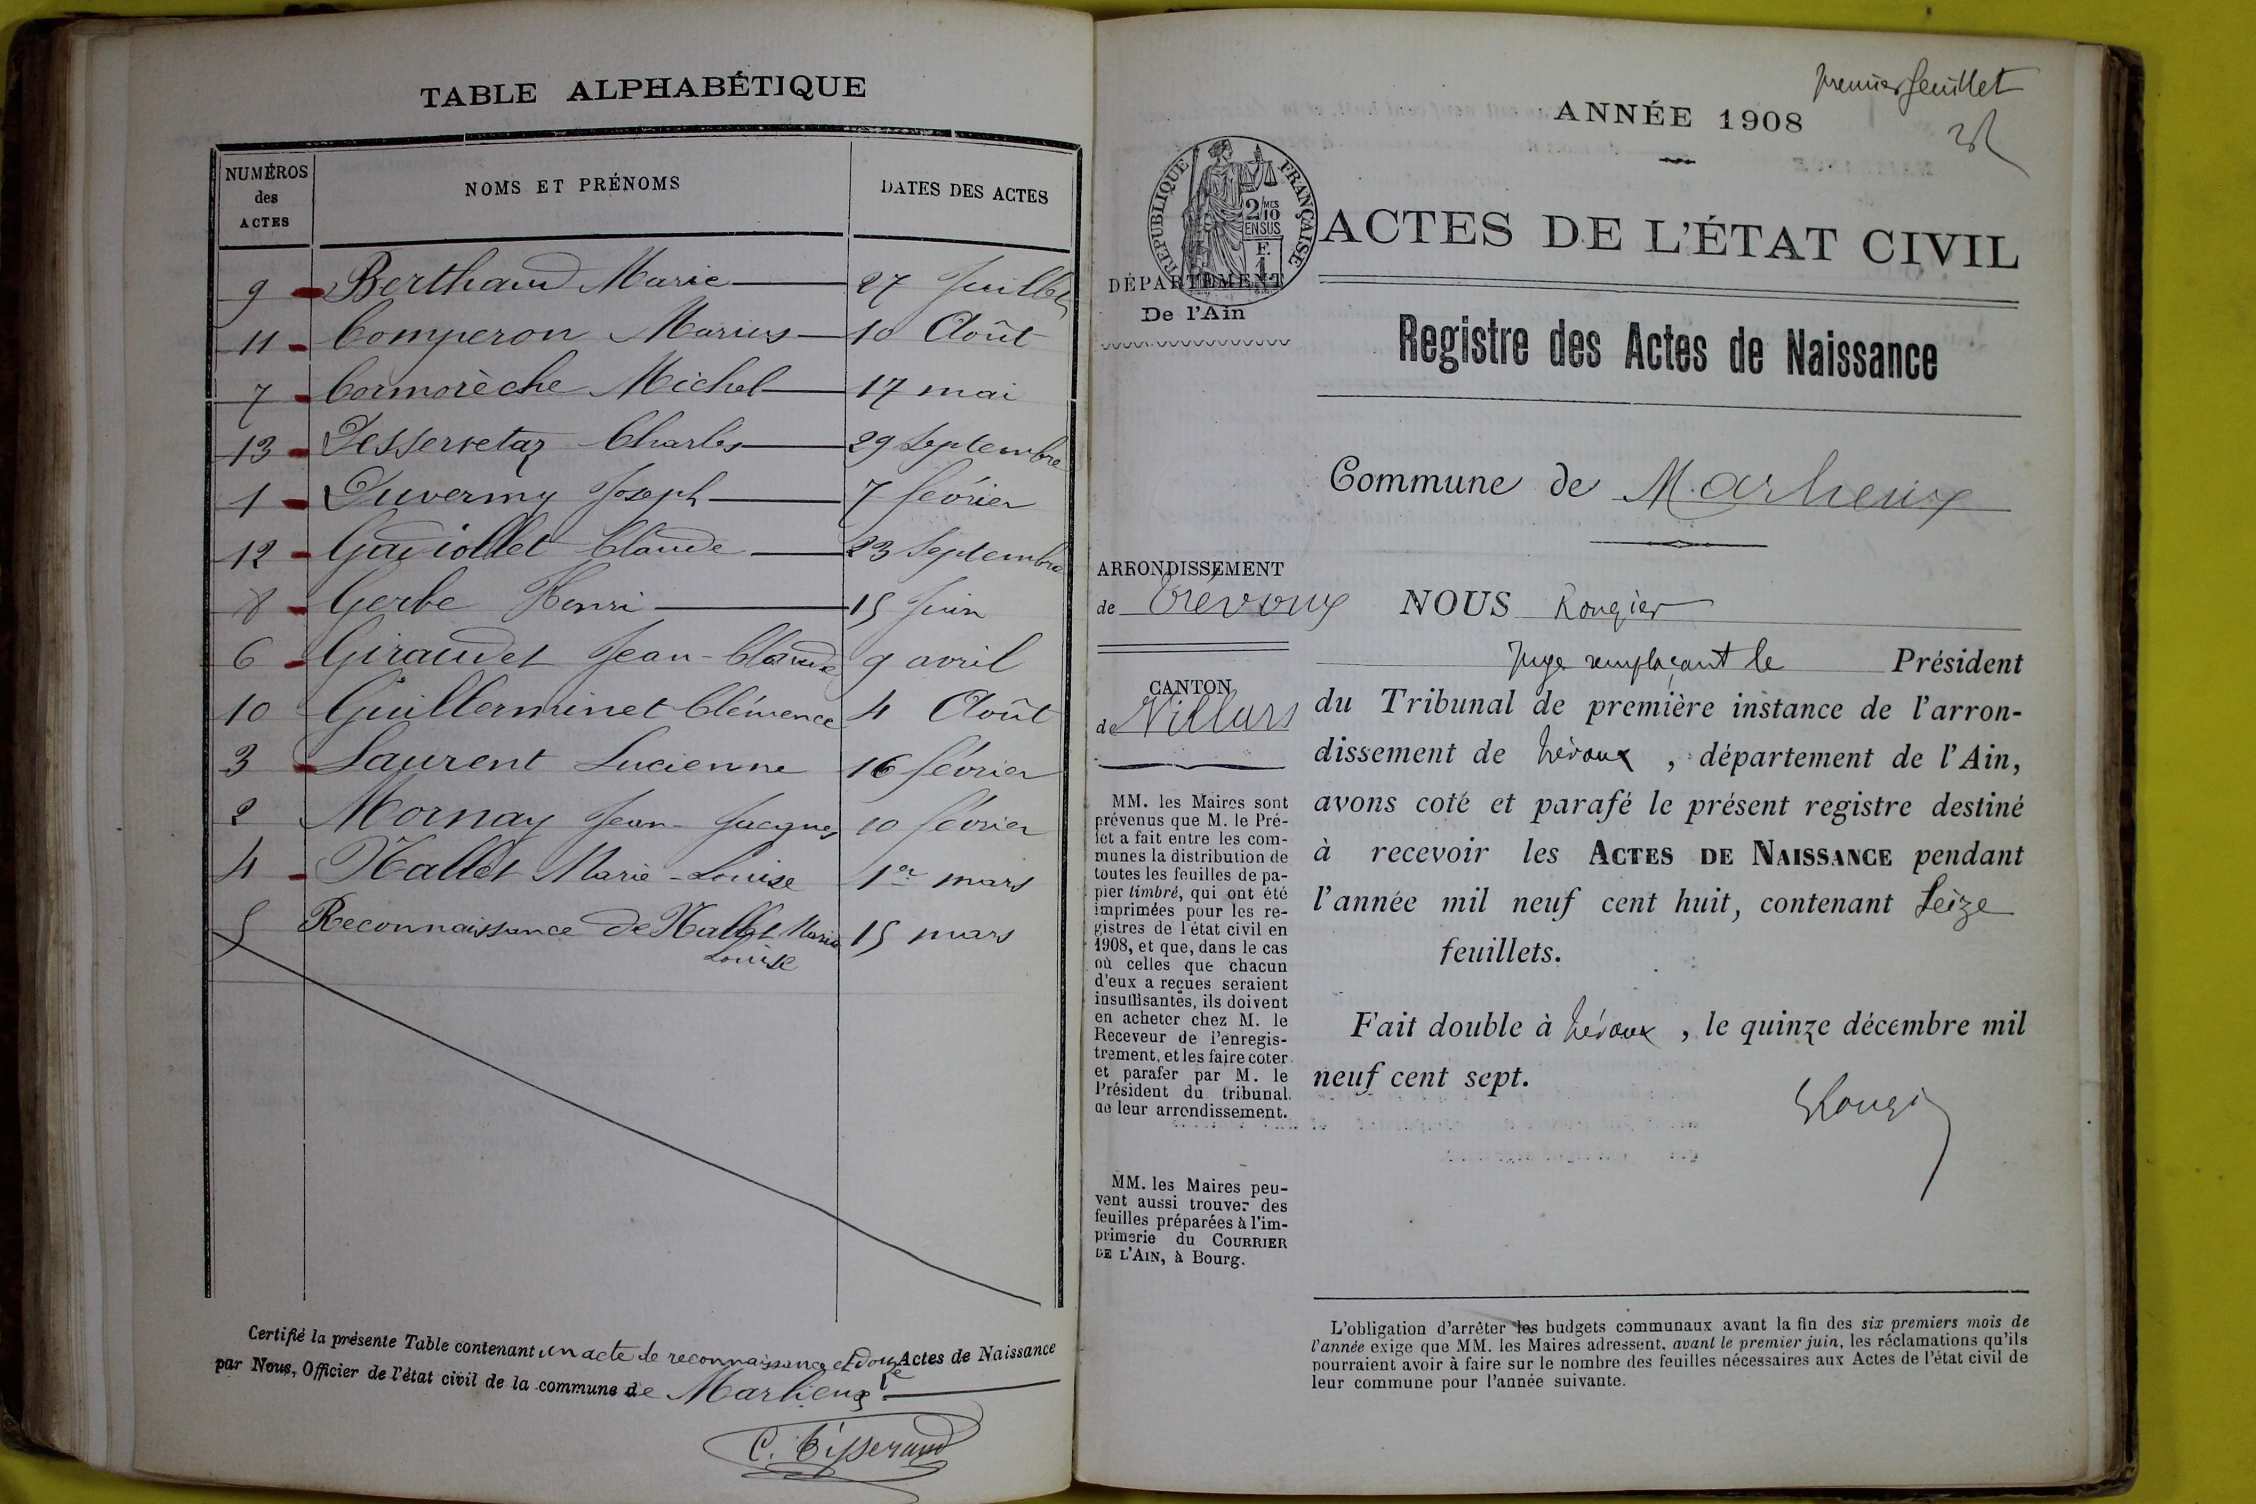 TABLE ALPHABÉTIQUE
NUMÉROS des ACTES NOMS ET PRÉNOMS DATES DES ACTES
9 Berthaud Marie 27 Juillet
11 Comperon Marius 10 Août
7 Cormorèche Michel 17 mai
13 Desservetaz Charles 29 Septembre
1 Duverny Joseph 7 février
12 Gaviollet Claude 23 Septembre
8 Gerbe Henri 15 Juin
6 Giraudet Jean-Claude 9 avril
10 Guillerminet Clémence 4 Août
3 Laurent Lucienne 16 février
2 Mornay Jean-Jacques 10 février
4 Nallet Marie-Louise 1er mars
5 Reconnaissance de Nallet Marie 15 mars
Louise
Certifié la présente Table contenant un acte de reconnaissance et douze Actes de Naissance
par Nous, Officier de l'état civil de la commune de Marlieux
C. Tisserand
premier feuillet
ANNÉE 1908
RÉPUBLIQUE FRANÇAISE
2/10 MES
EN SUS
F.
1
DÉPARTEMENT
De l'Ain
ARRONDISSEMENT
de Trévoux
CANTON
de Villars
MM. les Maires sont
prévenus que M. le Pré-
fet a fait entre les com-
munes la distribution de
toutes les feuilles de pa-
pier timbré, qui ont été
imprimées pour les re-
gistres de l'état civil en
1908, et que, dans le cas
où celles que chacun
d'eux a reçues seraient
insuffisantes, ils doivent
en acheter chez M. le
Receveur de l'enregis-
trement, et les faire coter
et parafer par M. le
Président du tribunal
de leur arrondissement.
MM. les Maires peu-
vent aussi trouver des
feuilles préparées à l'im-
primerie du COURRIER
DE L'AIN, à Bourg.
ACTES DE L'ÉTAT CIVIL
Registre des Actes de Naissance
Commune de Marlieux
NOUS Rougier
Juge remplaçant le Président
du Tribunal de première instance de l'arron-
dissement de Trévoux, département de l'Ain,
avons coté et parafé le présent registre destiné
à recevoir les ACTES DE NAISSANCE pendant
l'année mil neuf cent huit, contenant Seize
feuillets.
Fait double à Trévoux, le quinze décembre mil
neuf cent sept.
Rougier
L'obligation d'arrêter les budgets communaux avant la fin des six premiers mois de
l'année exige que MM. les Maires adressent, avant le premier juin, les réclamations qu'ils
pourraient avoir à faire sur le nombre des feuilles nécessaires aux Actes de l'état civil de
leur commune pour l'année suivante.